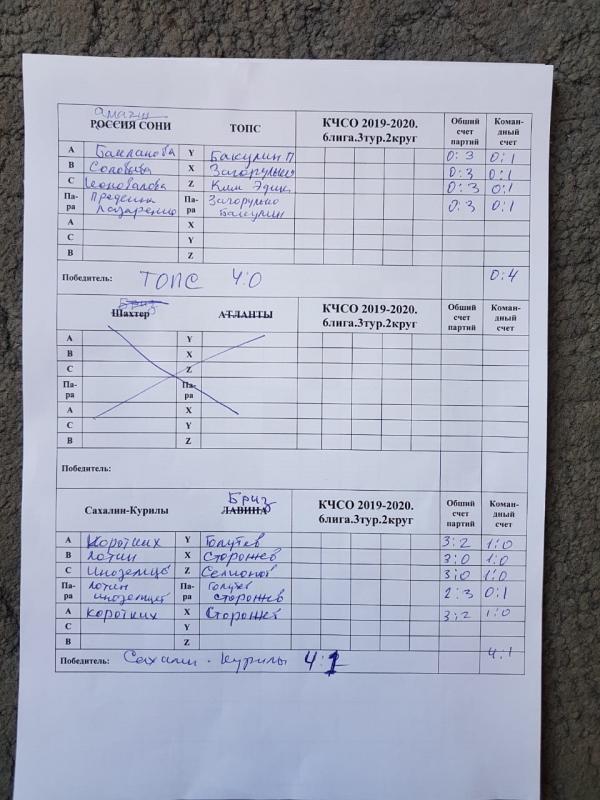 РОССИЯ СОНИ ТОПС КЧСО 2019-2020. 6лига.3тур.2круг Общий счет партий Коман-дный счет
A Y Бакулин П 0:3 0:1
B X Загорулько 0:3 0:1
C Коновалова Z Ким Эдик 0:3 0:1
Па-ра Лазаренко Па-ра Загорулько Бакулин 0:3 0:1
A X
C Y
B Z
Победитель: ТОПС 4:0 0:4
Бриз
Шахтер АТЛАНТЫ КЧСО 2019-2020. 6лига.3тур.2круг Общий счет партий Коман-дный счет
A Y
B X
C Z
Па-ра Па-ра
A X
C Y
B Z
Победитель:
Бриз
Сахалин-Курилы ЛАВИНА КЧСО 2019-2020. 6лига.3тур.2круг Общий счет партий Коман-дный счет
A Коротких Y 3:2 1:0
B Лотин X Сторожев 3:0 1:0
C Иноземцев Z 3:0 1:0
Па-ра Лотин иноземцев Па-ра Сторожев 2:3 0:1
A Коротких X Сторожев 3:2 1:0
C Y
B Z
Победитель: Сахалин-Курилы 4:1 4:1